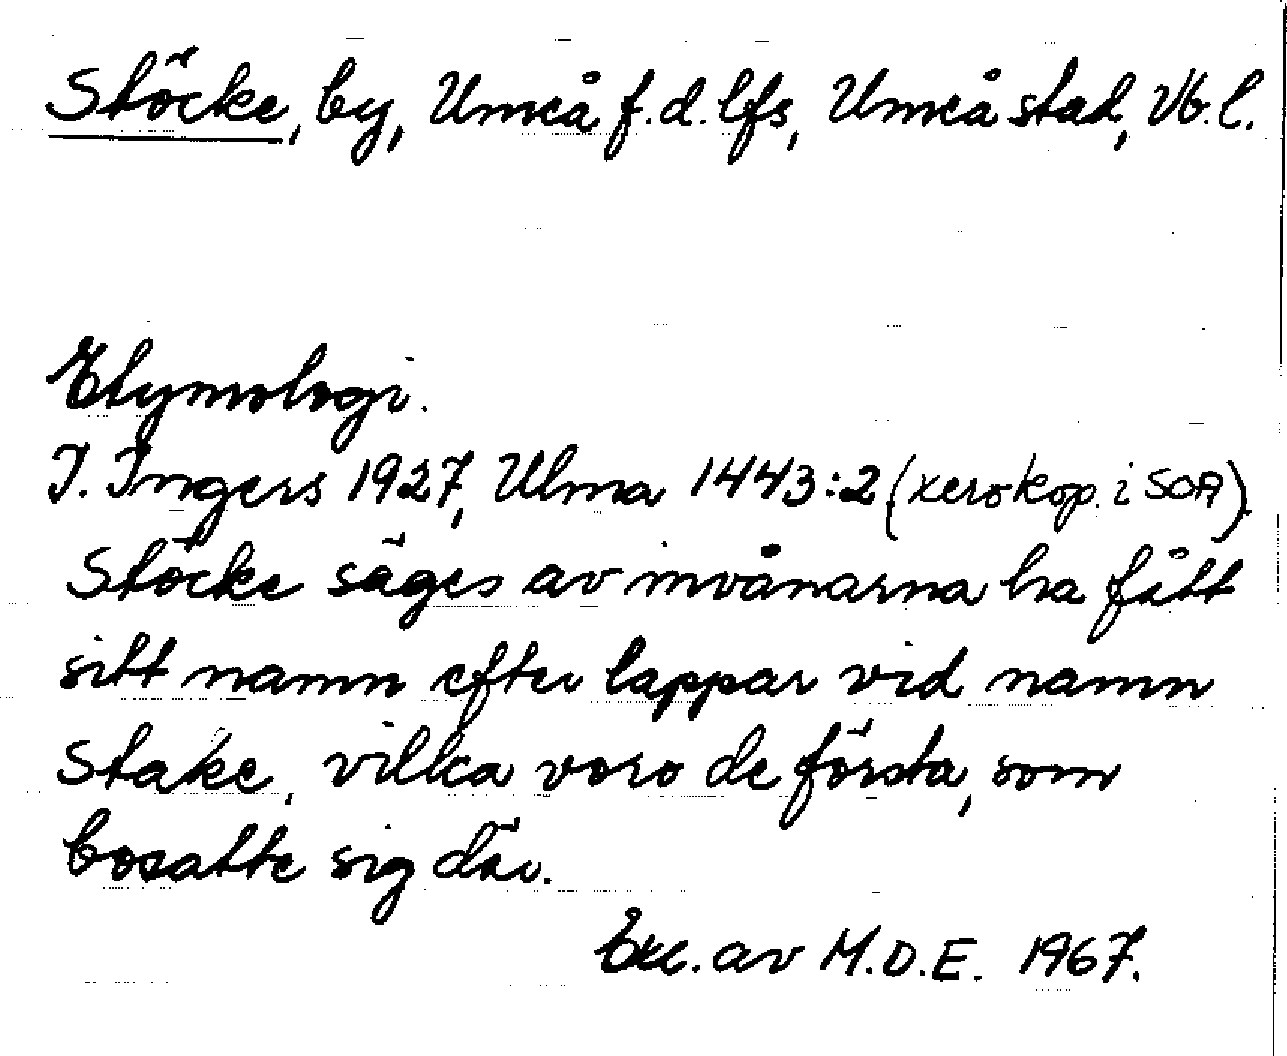 Stöcke, by, Umeå f.d. lfs, Umeå stad, Vb. l.
Etymologi.
I. Ingers 1927, Ulma 1443:2 (xerokop. i SOA).
Stöcke säges av invånarna ha fått
sitt namn efter lappar vid namn
Stake, vilka voro de första, som
bosatte sig där.
Exc. av M.D.E. 1967.